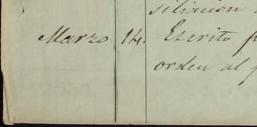 Marzo 14. Escrito
orden al